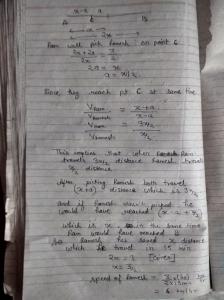 x-a a
A C B
2x
Ram will pick Ramesh on point C.
2x + 2a = 3
2x 2
2a = x
a = x/2
Since, they reach pt C at same time
V Ram = x+a
V Ramesh x-a
V Ram = 3x/2
V Ramesh x/2
This implies that when Ram
travels 3x/2 distance Ramesh travels
x/2 distance
After picking Ramesh both travel
(x+a) distance which is 3x/2
And if Ramesh picked he
would have reached (x-a+x/2)
which is x, in the same time
Ram would have reached
So Ramesh has saved x distance
which he travel in 15 min
2x = 3
x = 3/2
speed of Ramesh =
= 6 km/hr